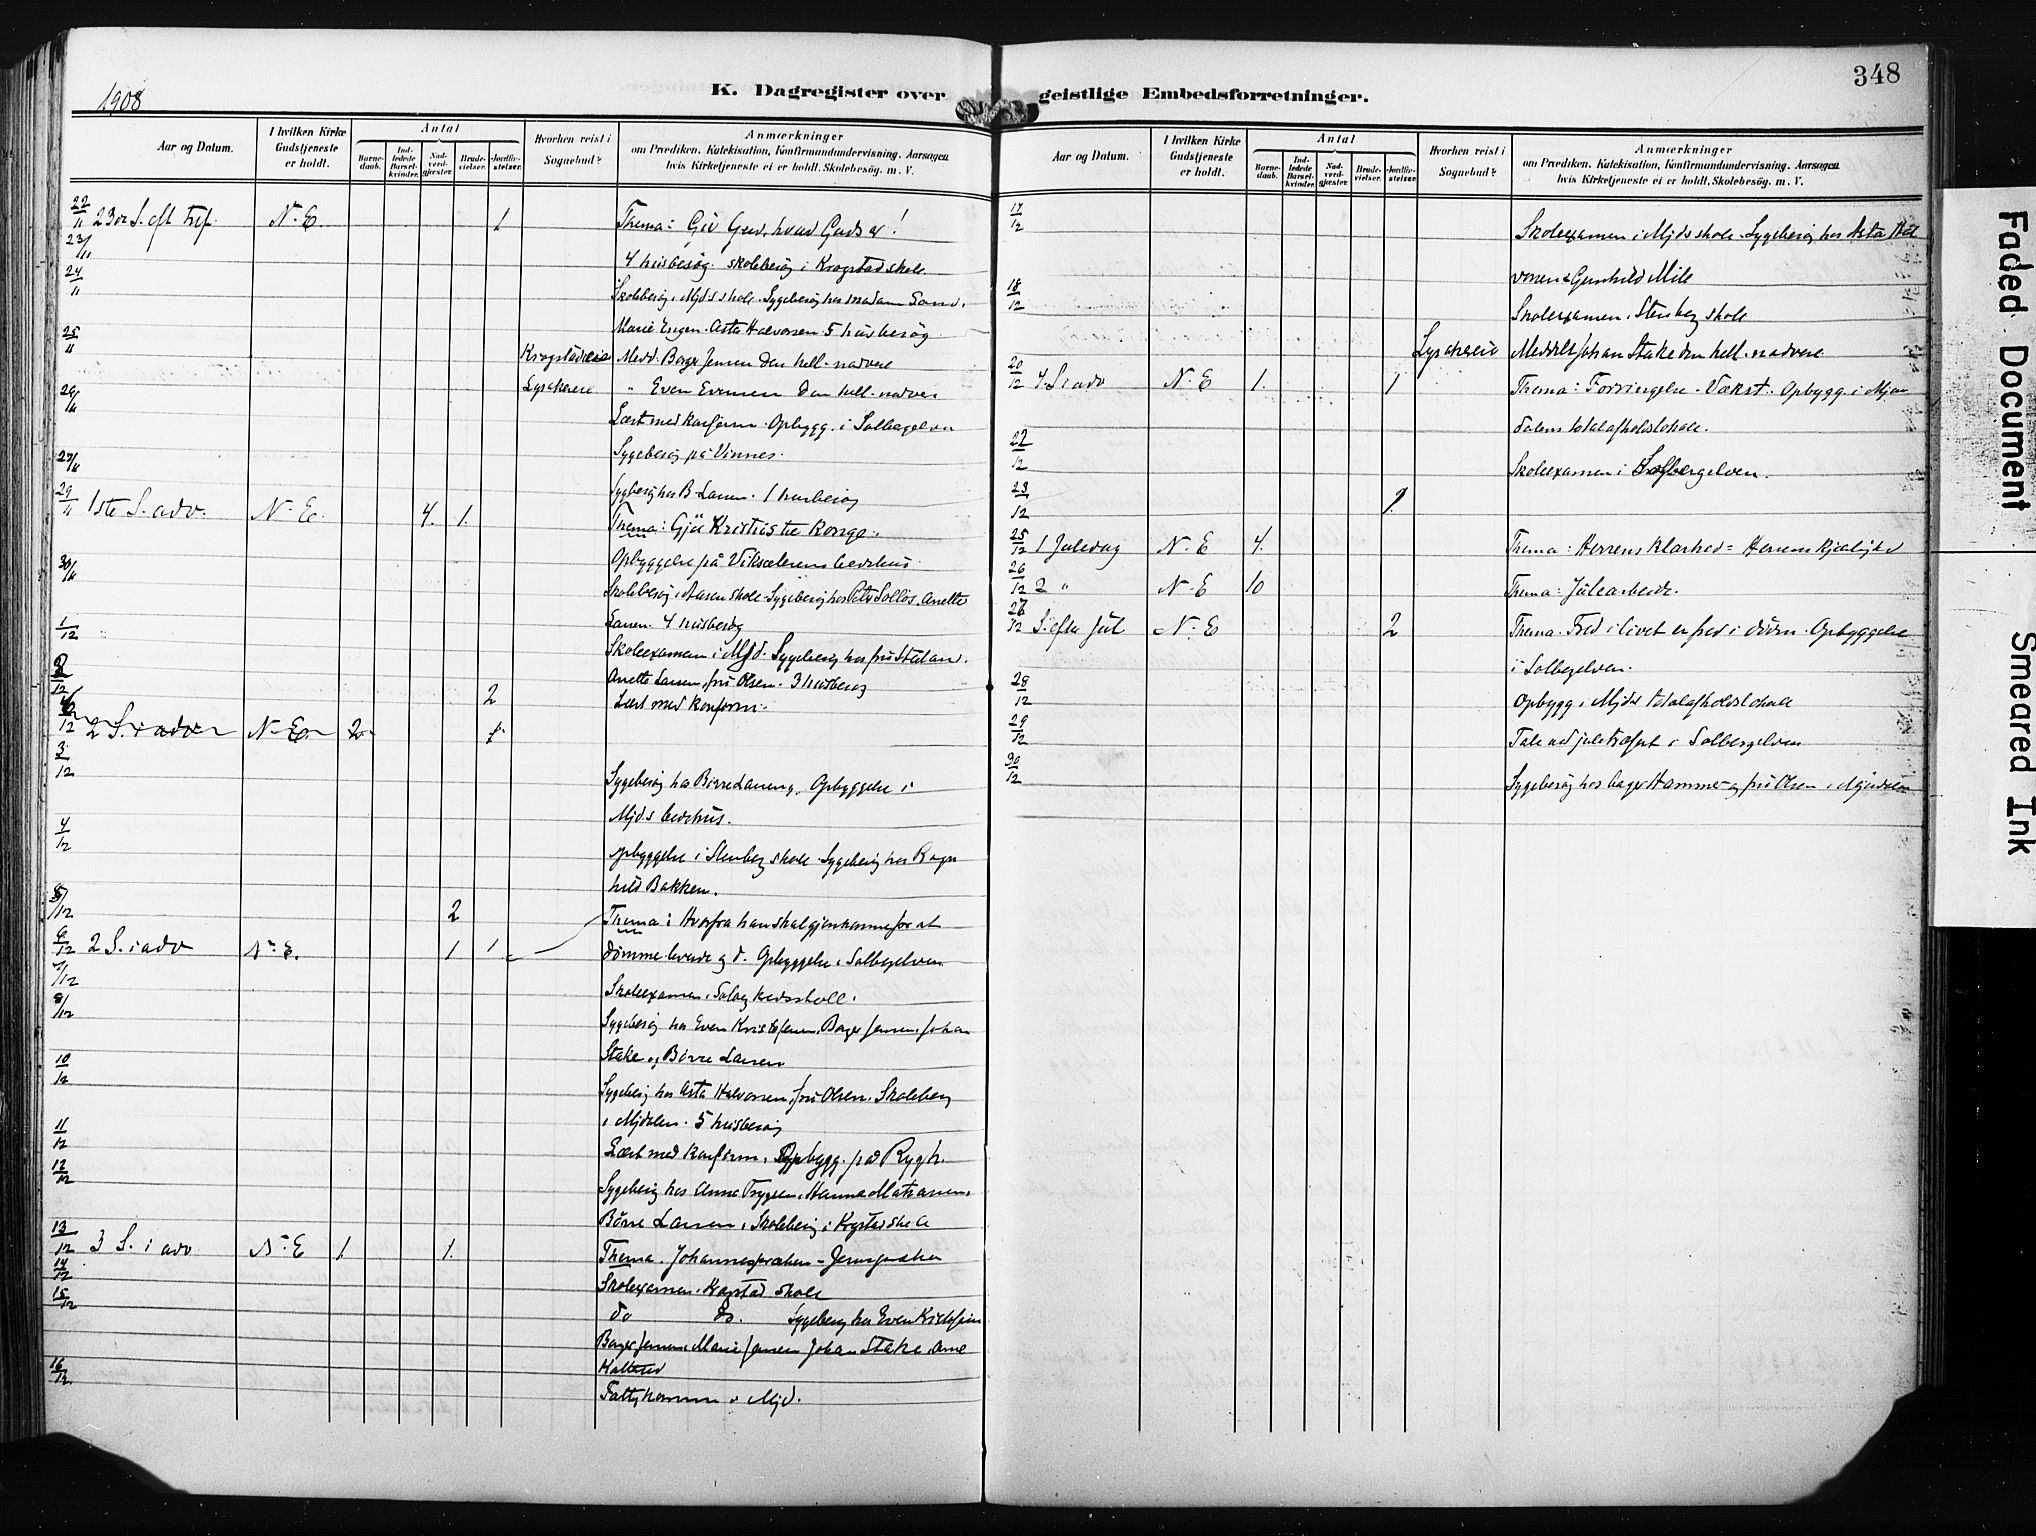 348
1908
K. Dagregister over geistlige Embedsforretninger.
Aar og Datum.
I hvilken Kirke Gudstjeneste er holdt.
Antal
Barnedaab.
Indledede Barselkvinder.
Nadverdgjester.
Brudevielser.
Jordfæstelser.
Hvorhen reist i Sognebud?
Anmærkninger
om Prædiken, Katekisation, Konfirmandundervisning, Aarsagen
hvis Kirketjeneste ei er holdt, Skolebesøg. m. V.
22/11 23de S. eft tref. N. E. 1 Thema: Giv Gud, hvad Guds er!
23/11
4 husbesøg. skolebesøg i Krogstad skole
24/11
Skolebesøg i Mjds skole. Sygebesøg hos madam Sand,
Marie Engen. Asta Halvorsen 5 husbesøg
25/11
Medd. Borger Jensen den hell. nadvere
Lysakereie " Even Evensen den hell. nadver
26/11
Læst med konfirm. Opbygg. i Solbergelven
Sygebesøg på Vinnes.
27/11
Sygebesøg hos B. Larsen. 1 husbesøg
29/11 1ste S. adv. N. E. 4. 1. Thema: Kristus til konge.
Opbyggelse på bedehus
30/11
Skolebesøg i Aasen skole. Sygebesøg hos Anette
Larsen. 4 husbesøg
1/12
Skoleexamen i Mjd. Sygebesøg hos fru
Anette Larsen, fru Olsen. 3 husbesøg
2/12 2 Læst med konfirm.
6/12 2 S. i adv N. E. 2 1
3/12
Sygebesøg hos Børre Larsen, Opbyggelse i
Mjds bedehus.
4/12
opbyggelse i Stenberg skole. Sygebesøg hos Ragn
hild Bakken.
5/12 2 Thema: Hvorfra han skal gjenkomme for at
6/12 2 S. i adv N. E. 1 1 dømme levende og d. Opbyggelse i Solbergelven
7/12
Skoleexamen i
8/12
Sygebesøg hos Even Kristofersen, Borger Jensen, Johan
Stake og Børre Larsen
10/12
Sygebesøg hos Asta Halvorsen, fru Olsen. Skolebesøg
i Mjdalen. 5 husbesøg
11/12
Læst med konfirm. Opbygg. på Rygh.
12/12
Sygebesøg hos Anna, Hanna
Børre Larsen. Skolebesøg i Krogstad skole
13/12 3 S. i adv N. E 1 1. Thema.
14/12
Skoleexamen i Krogstad skole
15/12
do do. Sygebesøg hos Even Kristofersen
Borger Jensen, Marie Jensen Johan Stake, Arne
Kolterud
16/12
Fattigkomm i Mjd.
Aar og Datum.
I hvilken Kirke Gudstjeneste er holdt.
Antal
Barnedaab.
Indledede Barselkvinder.
Nadverdgjester.
Brudevielser.
Jordfæstelser.
Hvorhen reist i Sognebud?
Anmærkninger
om Prædiken, Katekisation, Konfirmandundervisning, Aarsagen
hvis Kirketjeneste ei er holdt, Skolebesøg. m. V.
17/12
Skoleexamen i Mjds skole. Sygebesøg hos Asta Hal
vorsen & Gunhild Mile
18/12
Skoleexamen i Stenberg skole
Lysakereie Meddelt Johan Stake den hell. nadvere
20/12 4 S i adv N. E 1. 1 Thema: Forringelse - Vækst. Opbygg. i Mjøn
dalens totalafholdslokale.
22/12
Skoleexamen i Solbergelven.
23/12 1
25/12 1 Juledag N. E 4. Thema: Herrens klarhed = Herrens kjærlighed
26/12 2 " N. E 10 Thema: Julearbeide.
27/12 S. efter Jul N. E 2 Thema. Fred i livet er fred i døden. Opbyggelse
i Solbergelven.
28/12
Opbygg. i Mjds totalafholdslokale
29/12
Tale ved juletræfest i Solbergelven
30/12
Sygebesøg hos bager Hammer og fru Olsen i Mjøndalen
Faded Document
Smeared Ink